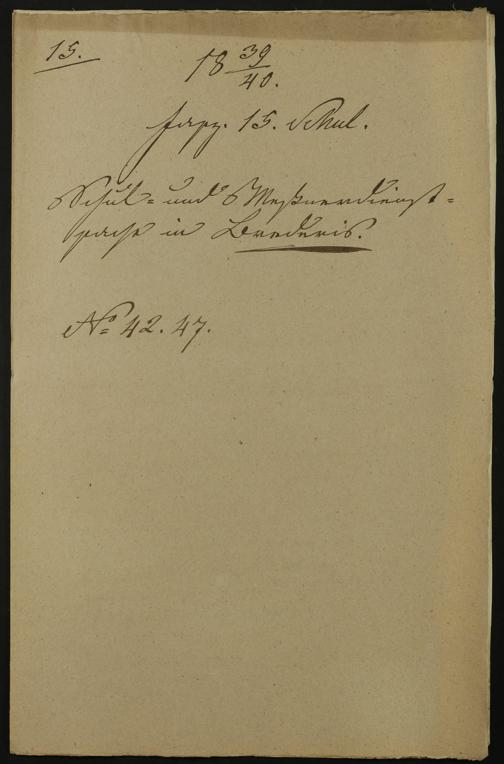 15.
18 39/40.
Fasz. 15. Schul.
Schul- und Meßnerdienst-
sache in Brederis.
No 42. 47.